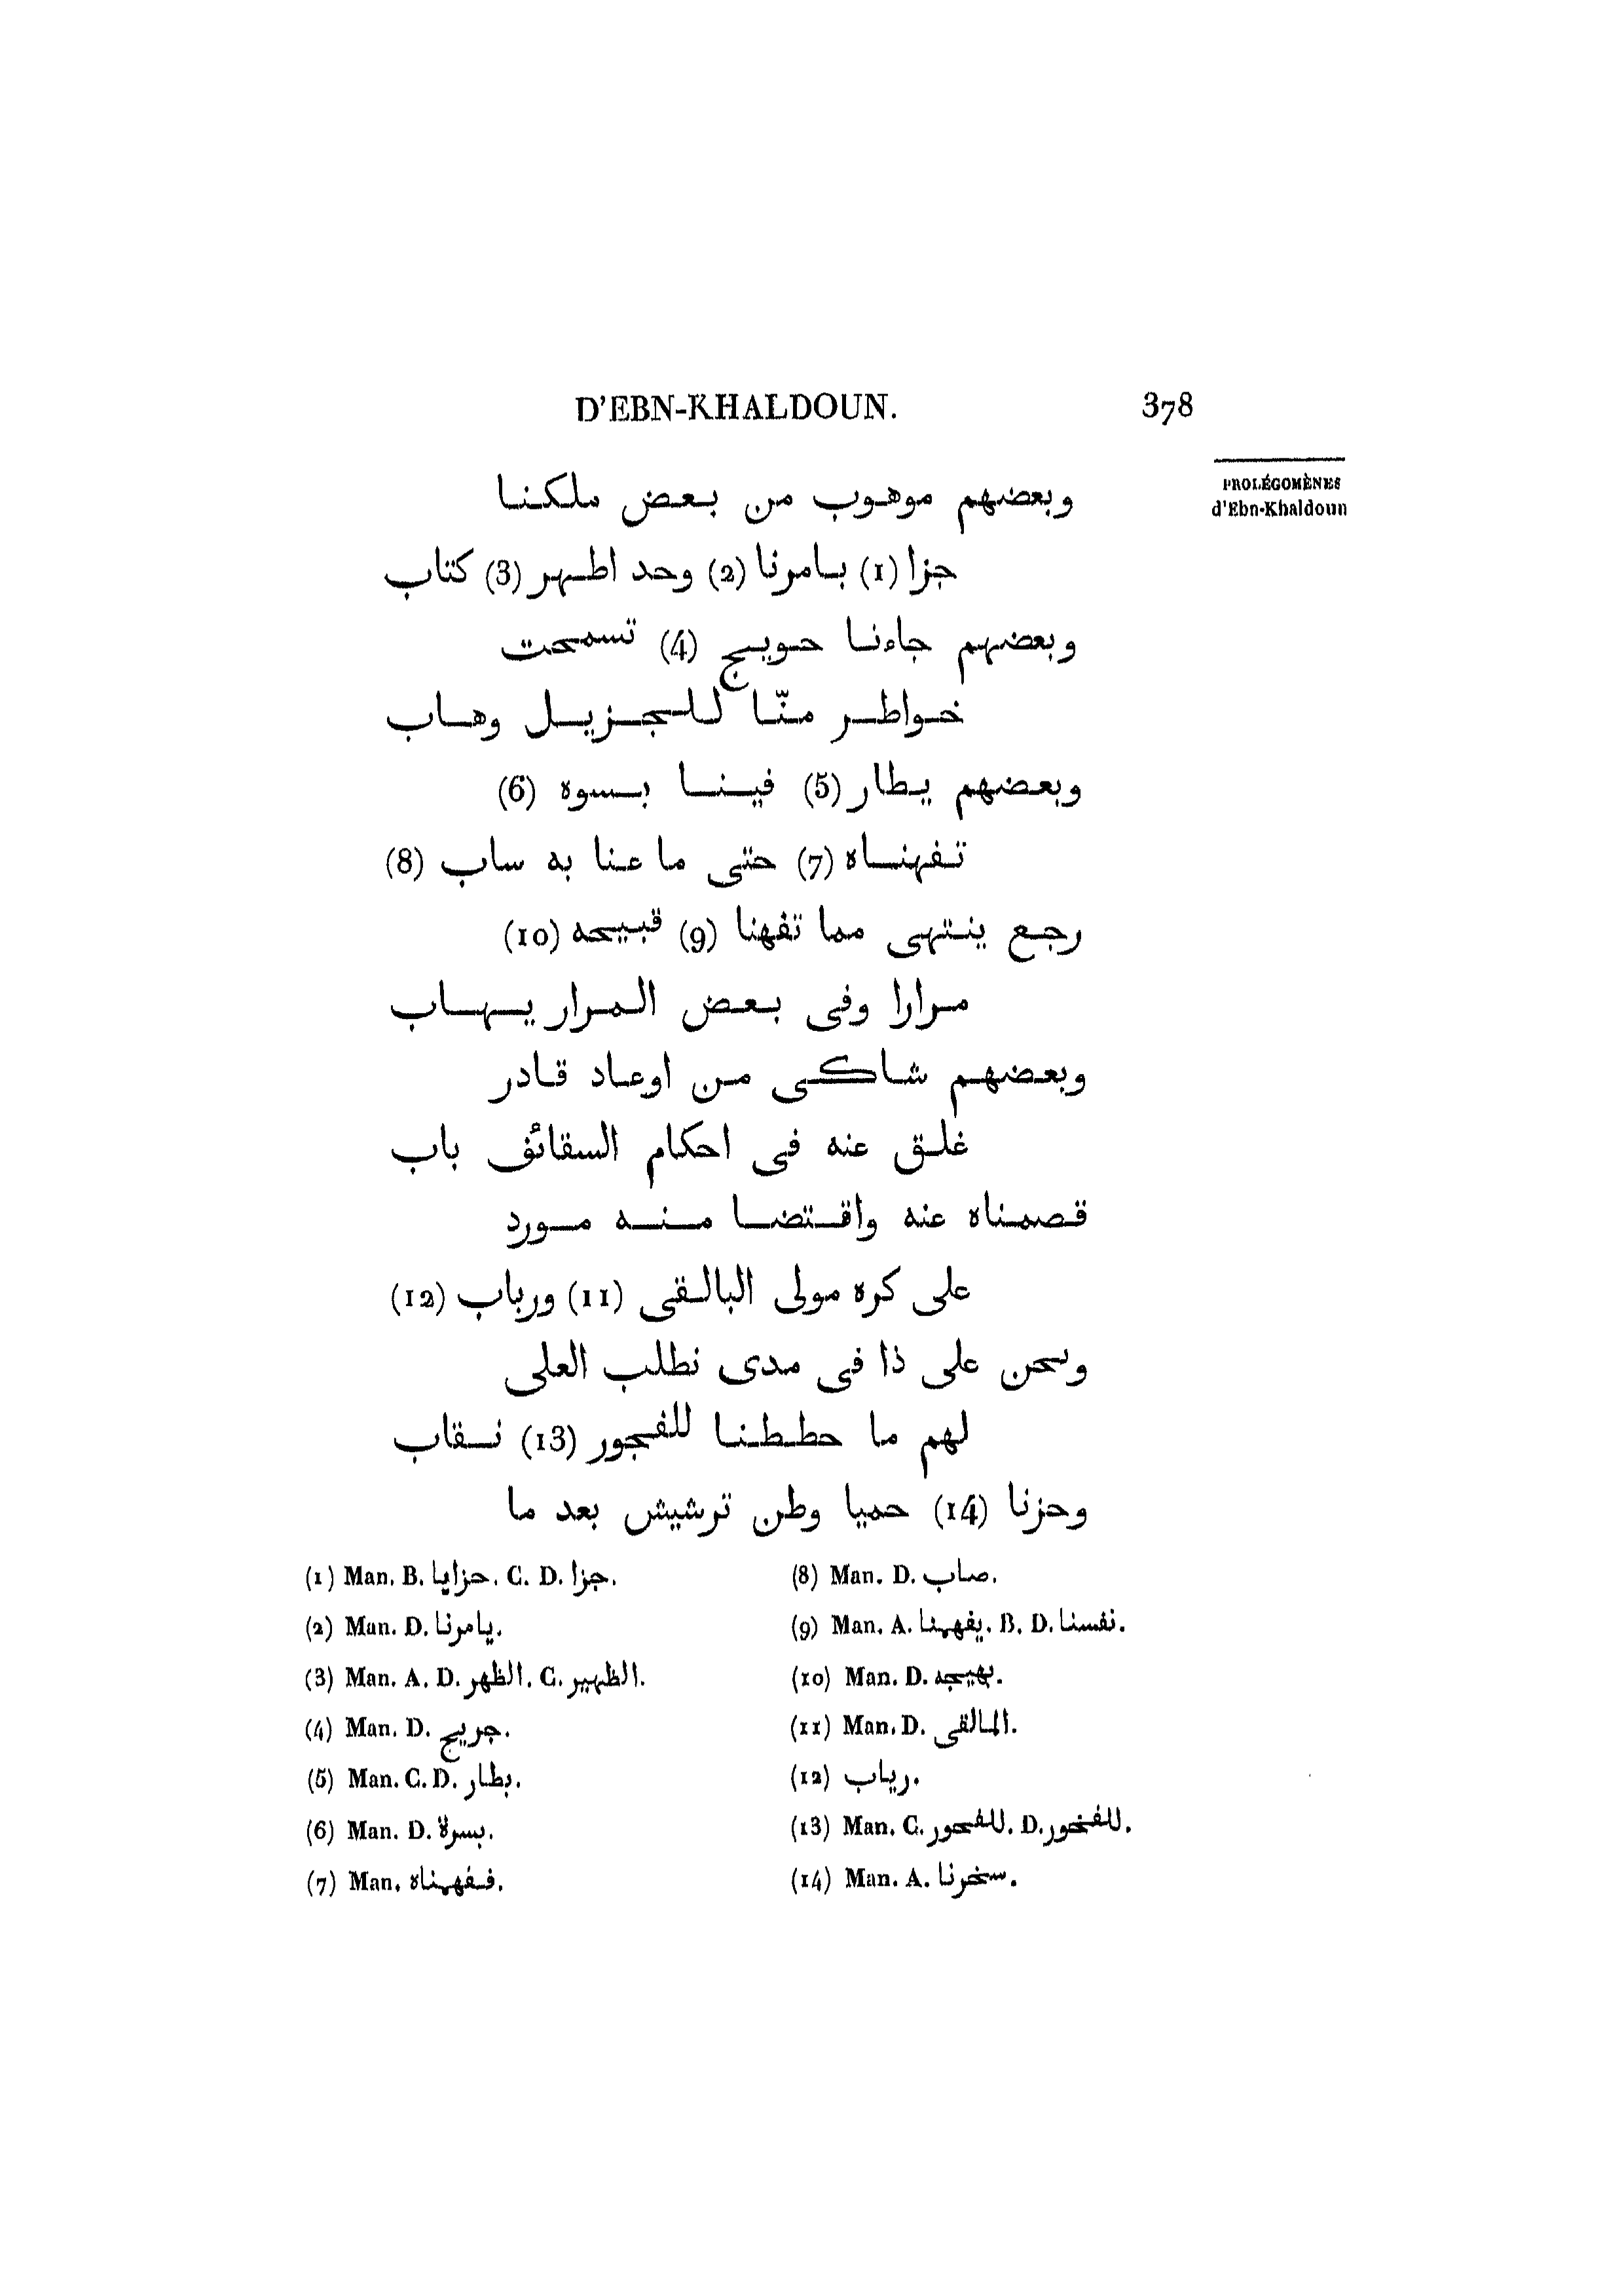 D'EBN-KHALDOUN. 378
PROLÉGOMÈNES
d'Ebn-Khaldoun
وبعضهم موهوب من بعض ملكنا
جزا (1) بامرنا (2) وحد اطهر (3) كتاب
وبعضهم جاءنا حويج (4) تسمحت
خواطر منّا للجزيل وهاب
وبعضهم يطار (5) فينا بسوه (6)
تفهناه (7) حتى ما عنا به ساب (8)
رجع ينتهى مما تفهنا (9) قبيحه (10)
مرارا وفى بعض المرار يهاب
وبعضهم شاكى من اوعاد قادر
غلق عنه فى احكام السقائف باب
قصمناه عنه واقتضا منه مورد
على كره مولى البالقى (11) ورباب (12)
ونحن على ذا فى مدى نطلب العلى
لهم ما حططنا للفجور (13) نقاب
وحزنا (14) حميا وطن ترشيش بعد ما
(1) Man. B. حزايا. C. D. جزا.
(2) Man. D. يامرنا.
(3) Man. A. D. الظهر. C. الظهير.
(4) Man. D. جريج.
(5) Man. C. D. بطار.
(6) Man. D. بسرة.
(7) Man. ففهمناه.
(8) Man. D. صاب.
(9) Man. A. يفهمنا. B. D. نفسنا.
(10) Man. D. بهيجه.
(11) Man. D. المالقى.
(12) رياب.
(13) Man. C. للفحور. D. للفخور.
(14) Man. A. سخرنا.